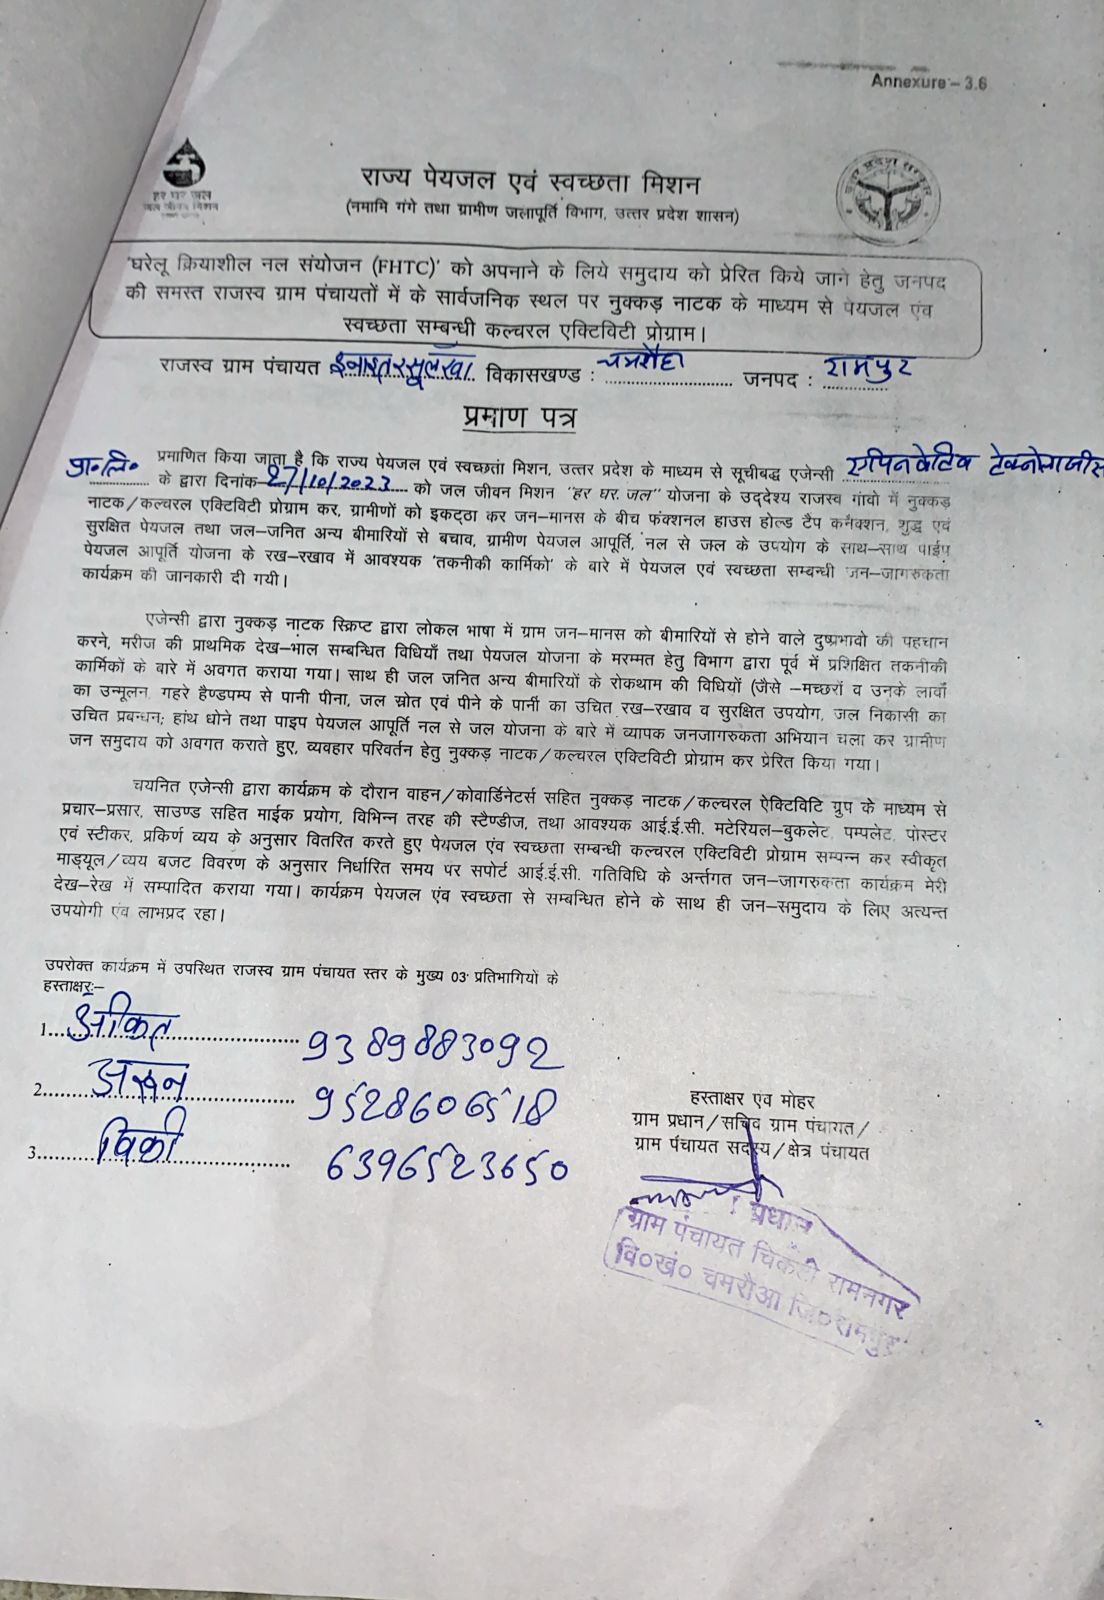 Annexure – 3.6
हर घर जल
जल जीवन मिशन
उत्तर प्रदेश सरकार
राज्य पेयजल एवं स्वच्छता मिशन
(नमामि गंगे तथा ग्रामीण जलापूर्ति विभाग, उत्तर प्रदेश शासन)
'घरेलू क्रियाशील नल संयोजन (FHTC)' को अपनाने के लिये समुदाय को प्रेरित किये जाने हेतु जनपद
की समस्त राजस्व ग्राम पंचायतों में के सार्वजनिक स्थल पर नुक्कड़ नाटक के माध्यम से पेयजल एंव
स्वच्छता सम्बन्धी कल्चरल एक्टिविटी प्रोग्राम।
राजस्व ग्राम पंचायत इनाइतरसूलखाँ विकासखण्ड : चमरौहा जनपद : रामपुर
प्रमाण पत्र
प्रमाणित किया जाता है कि राज्य पेयजल एवं स्वच्छता मिशन, उत्तर प्रदेश के माध्यम से सूचीबद्ध एजेन्सी एपिनकेटिव टेक्नोलाजीस
प्रा०लि० के द्वारा दिनांक 27/10/2023 को जल जीवन मिशन "हर घर जल" योजना के उददेश्य राजस्व गांवो में नुक्कड़
नाटक/कल्चरल एक्टिविटी प्रोग्राम कर, ग्रामीणों को इकट्ठा कर जन–मानस के बीच फंक्शनल हाउस होल्ड टैप कनैक्शन, शुद्ध एवं
सुरक्षित पेयजल तथा जल–जनित अन्य बीमारियों से बचाव, ग्रामीण पेयजल आपूर्ति, नल से जल के उपयोग के साथ–साथ पाईप
पेयजल आपूर्ति योजना के रख–रखाव में आवश्यक 'तकनीकी कार्मिको' के बारे में पेयजल एवं स्वच्छता सम्बन्धी जन–जागरुकता
कार्यक्रम की जानकारी दी गयी।
एजेन्सी द्वारा नुक्कड़ नाटक स्क्रिप्ट द्वारा लोकल भाषा में ग्राम जन–मानस को बीमारियों से होने वाले दुष्प्रभावो की पहचान
करने, मरीज की प्राथमिक देख–भाल सम्बन्धित विधियाँ तथा पेयजल योजना के मरम्मत हेतु विभाग द्वारा पूर्व में प्रशिक्षित तकनीकी
कार्मिकों के बारे में अवगत कराया गया। साथ ही जल जनित अन्य बीमारियों के रोकथाम की विधियों (जैसे –मच्छरों व उनके लार्वा
का उन्मूलन, गहरे हैण्डपम्प से पानी पीना, जल स्रोत एवं पीने के पानी का उचित रख–रखाव व सुरक्षित उपयोग, जल निकासी का
उचित प्रबन्धन; हांथ धोने तथा पाइप पेयजल आपूर्ति नल से जल योजना के बारे में व्यापक जनजागरुकता अभियान चला कर ग्रामीण
जन समुदाय को अवगत कराते हुए, व्यवहार परिवर्तन हेतु नुक्कड़ नाटक/कल्चरल एक्टिविटी प्रोग्राम कर प्रेरित किया गया।
चयनित एजेन्सी द्वारा कार्यक्रम के दौरान वाहन/कोवार्डिनेटर्स सहित नुक्कड़ नाटक/कल्चरल ऐक्टिविटि ग्रुप के माध्यम से
प्रचार–प्रसार, साउण्ड सहित माईक प्रयोग, विभिन्न तरह की स्टैण्डीज, तथा आवश्यक आई.ई.सी. मटेरियल–बुकलेट, पम्पलेट, पोस्टर
एवं स्टीकर, प्रकिर्ण व्यय के अनुसार वितरित करते हुए पेयजल एंव स्वच्छता सम्बन्धी कल्चरल एक्टिविटी प्रोग्राम सम्पन्न कर स्वीकृत
माड्यूल/व्यय बजट विवरण के अनुसार निर्धारित समय पर सपोर्ट आई.ई.सी. गतिविधि के अर्न्तगत जन–जागरुकता कार्यक्रम मेरी
देख–रेख में सम्पादित कराया गया। कार्यक्रम पेयजल एंव स्वच्छता से सम्बन्धित होने के साथ ही जन–समुदाय के लिए अत्यन्त
उपयोगी एंव लाभप्रद रहा।
उपरोक्त कार्यक्रम में उपस्थित राजस्व ग्राम पंचायत स्तर के मुख्य 03 प्रतिभागियों के
हस्ताक्षरः–
1. अंकित 9389883092
2. अरून 9528606518
3. विकी 6396523650
हस्ताक्षर एंव मोहर
ग्राम प्रधान/सचिव ग्राम पंचायत/
ग्राम पंचायत सदस्य/क्षेत्र पंचायत
प्रधान
ग्राम पंचायत चिकटी रामनगर
वि०खं० चमरौआ जि०रामपुर